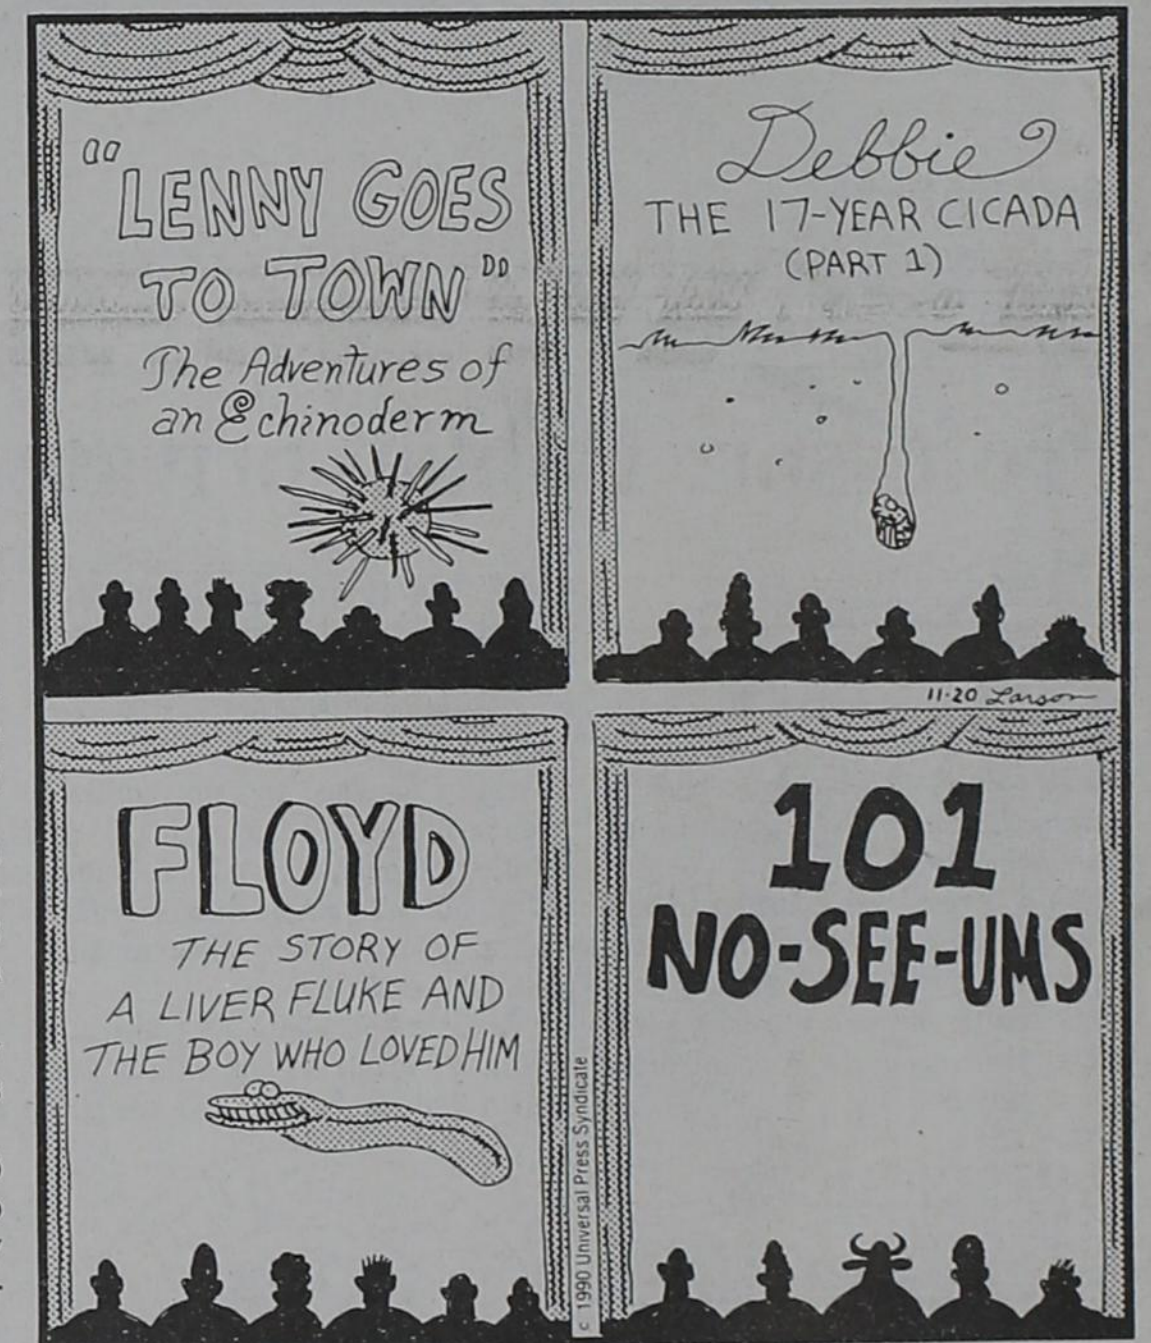 "LENNY GOES
TO TOWN"
The Adventures of
an Echinoderm
Debbie
THE 17-YEAR CICADA
(PART 1)
11-20 Larson
FLOYD
THE STORY OF
A LIVER FLUKE AND
THE BOY WHO LOVED HIM
© 1990 Universal Press Syndicate
101
NO-SEE-UMS